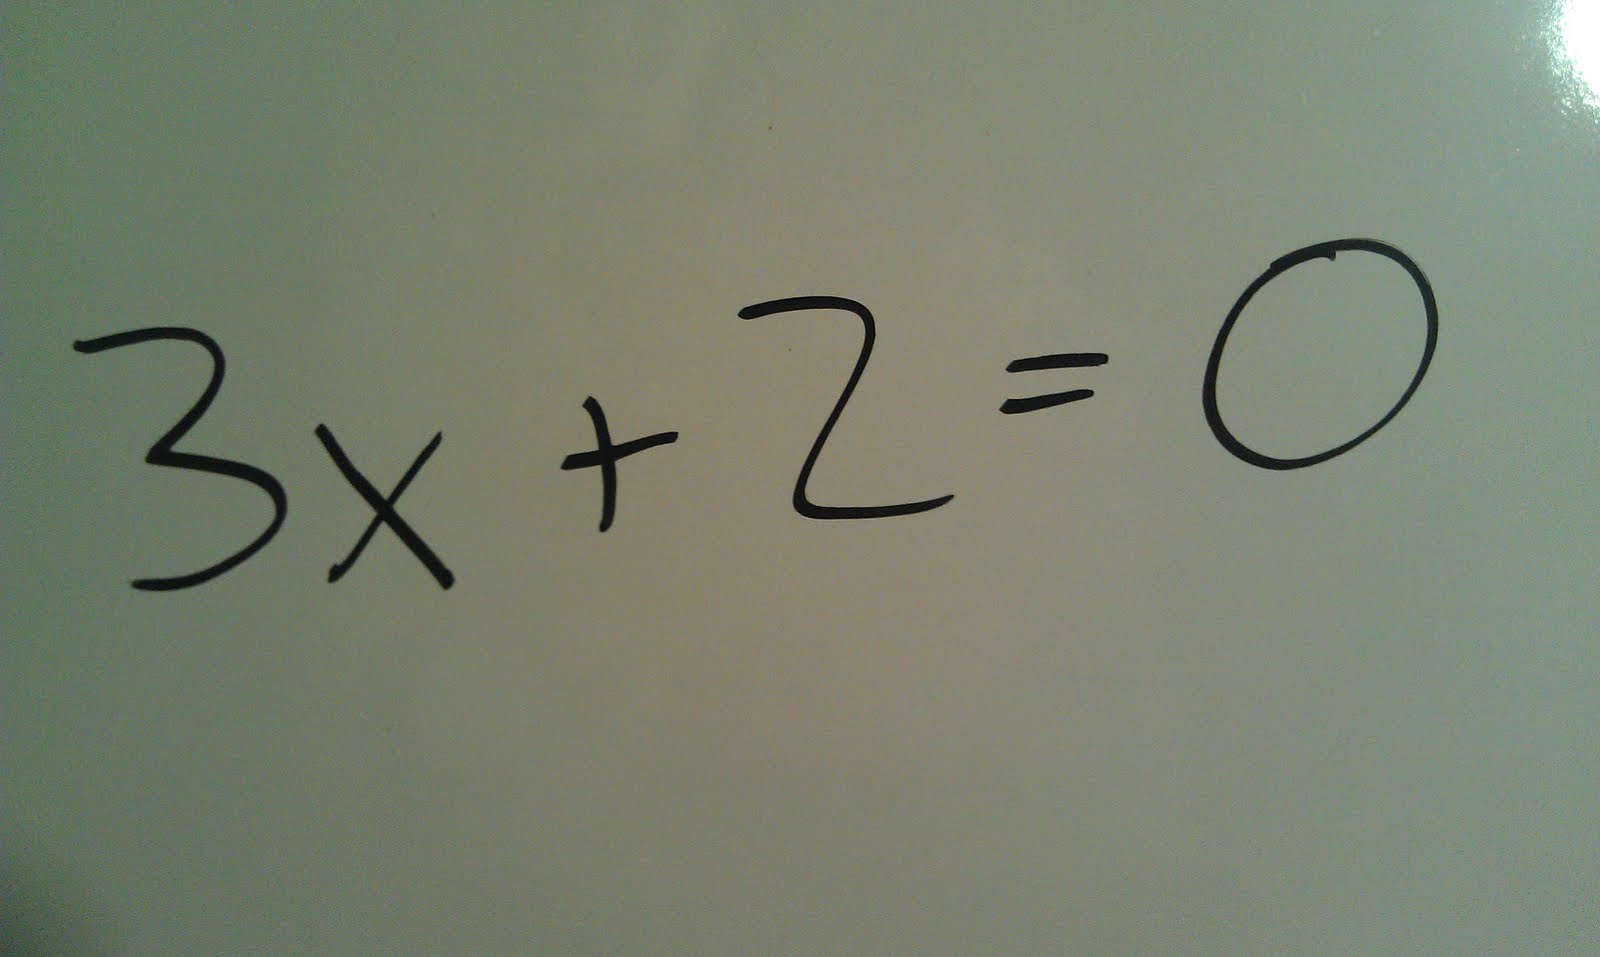 3x + 2 = 0